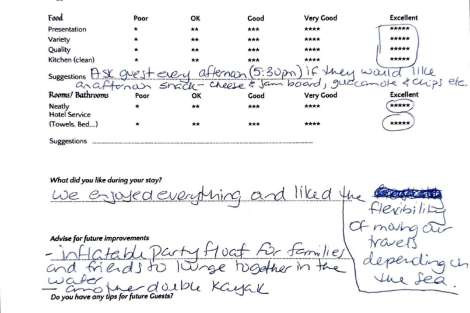 Food Poor OK Good Very Good Excellent
Presentation * ** *** **** *****
Variety * ** *** **** *****
Quality * ** *** **** *****
Kitchen (clean) * ** *** **** *****
Suggestions Ask guest every afternoon (5:30pm) if they would like
an afternoon snack - cheese & jam board, guacamole & chips etc.
Rooms/Bathrooms Poor OK Good Very Good Excellent
Neatly * ** *** **** *****
Hotel Service
(Towels, Bed...) * ** *** **** *****
Suggestions
What did you like during your stay?
We enjoyed everything and liked the
flexibility
of moving our
travels
depending on
the sea.
Advise for future improvements
- inflatable party float for families
and friends to lounge together in the
water
- another double kayak
Do you have any tips for future Guests?